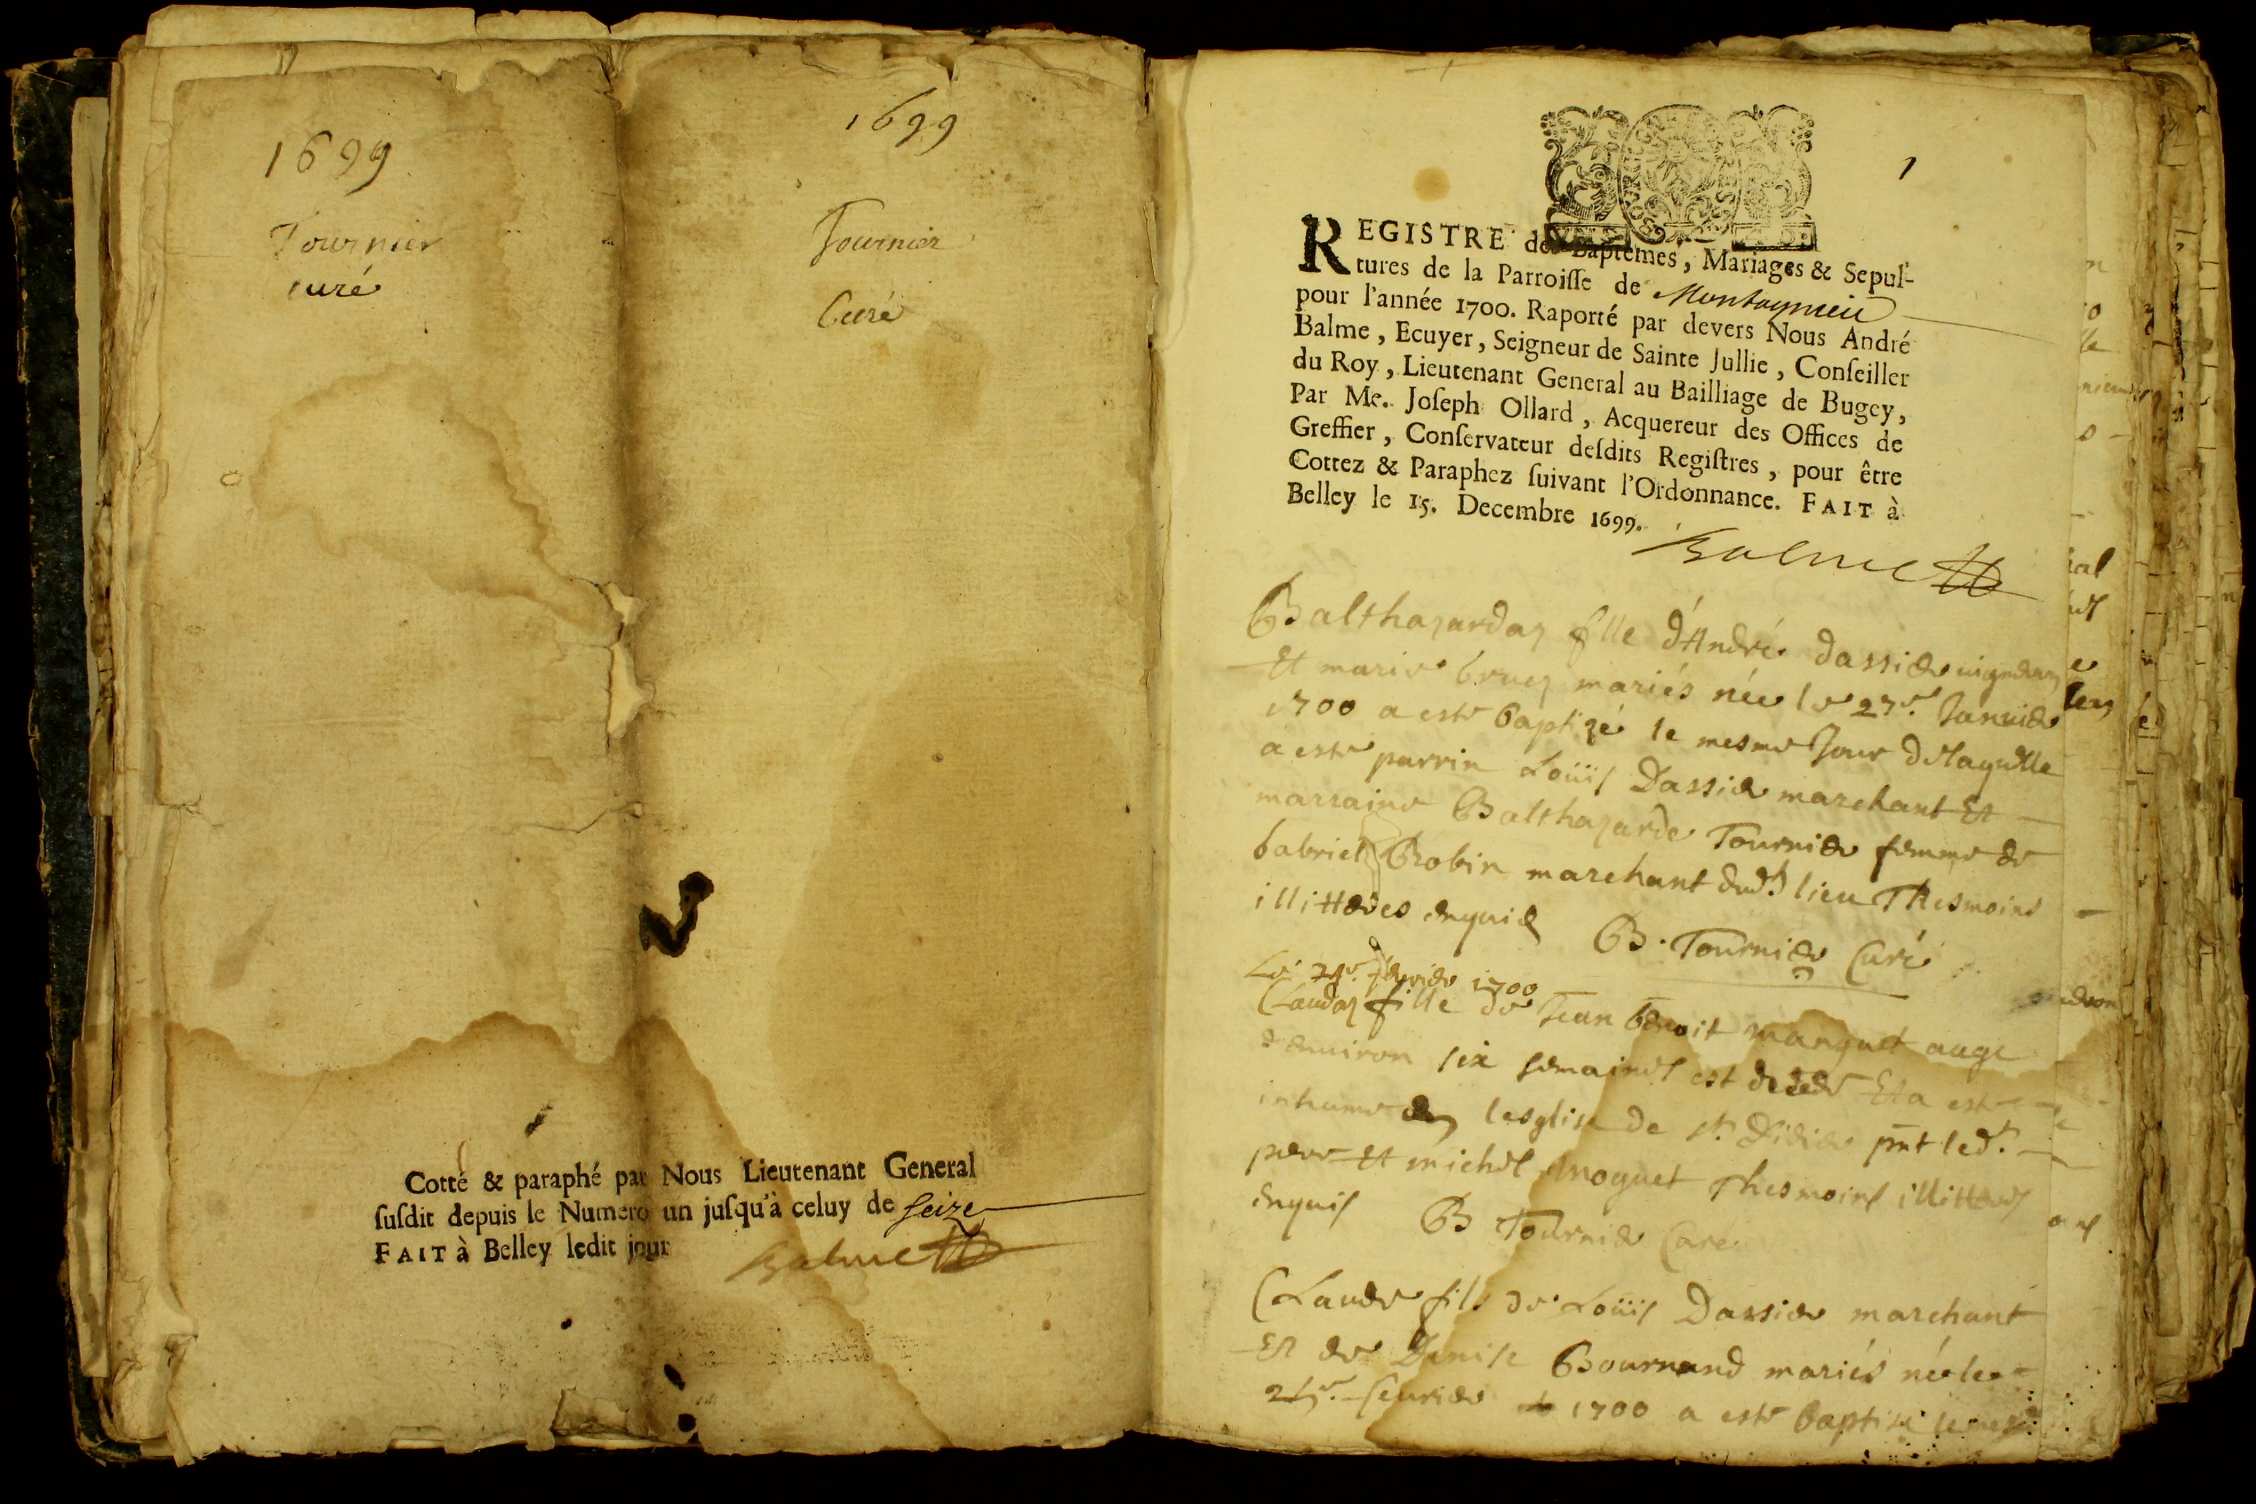 1699
Tournier
curé
1699
Tournier
Curé
Cotté & paraphé par Nous Lieutenant General
ſuſdit depuis le Numero un juſqu'à celuy de seize
FAIT à Belley ledit jour
Balme
1
REGISTRE des Baptêmes, Mariages & Sepul-
tures de la Parroiſſe de Montagnieu
pour l'année 1700. Raporté par devers Nous André
Balme, Ecuyer, Seigneur de Sainte Jullie, Conſeiller
du Roy, Lieutenant General au Bailliage de Bugey,
Par Me. Joſeph Ollard, Acquereur des Offices de
Greffier, Conſervateur deſdits Regiſtres, pour être
Cottez & Paraphez ſuivant l'Ordonnance. FAIT à
Belley le 15. Decembre 1699.
Balme
Balthazarda fille d'André Dassier vigneron
Et marie mariés née le 27e. Januier
1700 a este baptizé le mesme Jour de laquelle
a este parrin Loüis Dassier marchant Et
marraine Balthazarde Tournier femme de
Gabriel Brobin marchant dud. lieu Thesmoins
illitteres enquis B. Tournier Curé
Le feurier 1700
Clauda fille de Jean benoit manguet aage
d'enuiron six semaines est decede Et a este
inhume en lesglise de st. Didier pnt led.
pere Et michel moguet Thesmoins illitteres
enquis B Tournier Curé
Claude fils de Loüis Dassier marchant
Et de Denise Bournand mariés né le
feurier 1700 a este baptise le mesme